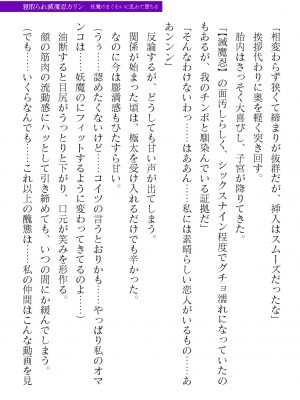 寝取られ滅魔忍カリン　妖魔のまぐわいに乱れて堕ちる
「相変わらず狭くて締まりが抜群だが、挿入はスムーズだったな」
挨拶代わりに奥を軽く突き回す。
胎内はさっそく大喜びし、子宮が降りてきた。
「【滅魔忍】の面汚しらしく、シックスナイン程度でグチョ濡れになっていたの
もあるが、我のチンポと馴染んでいる証拠だ」
「そんなわけないわっ……はああん……私には素晴らしい恋人がいるもの……あ
あンンン」
反論するが、どうしても甘い声が出てしまう。
関係が始まった頃は、極太を受け入れるだけでも辛かった。
なのに今は膨満感もひたすら甘い。
（うぅ……認めたくないけど、コイツの言うとおりかも……やっぱり私のオマ
ンコは……妖魔のにフィットするように変わってきてるのよ……）
油断すると目尻がうっとりと下がり、口元が笑みを形作る。
顔の筋肉の流動感にハッとして引き締めても、いつの間にか緩んでしまう。
（でも……いくらなんでも……これ以上の醜態は……私の仲間はこんな動画を見